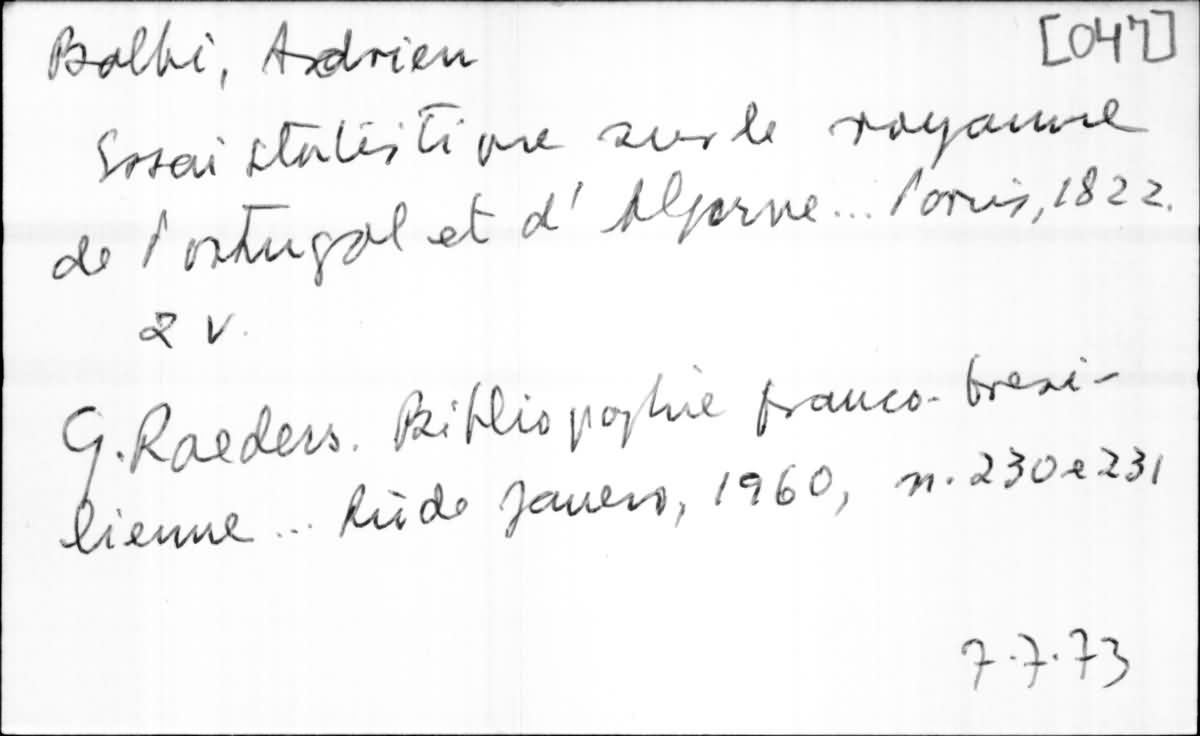 Balbi, Adrien [047]
Essai statistique sur le royaume
de Portugal et d'Algarve... Paris, 1822.
2 v.
G. Raeders. Bibliographie franco-brési-
lienne... Rio de Janeiro, 1960, n. 230 e 231
7.7.73